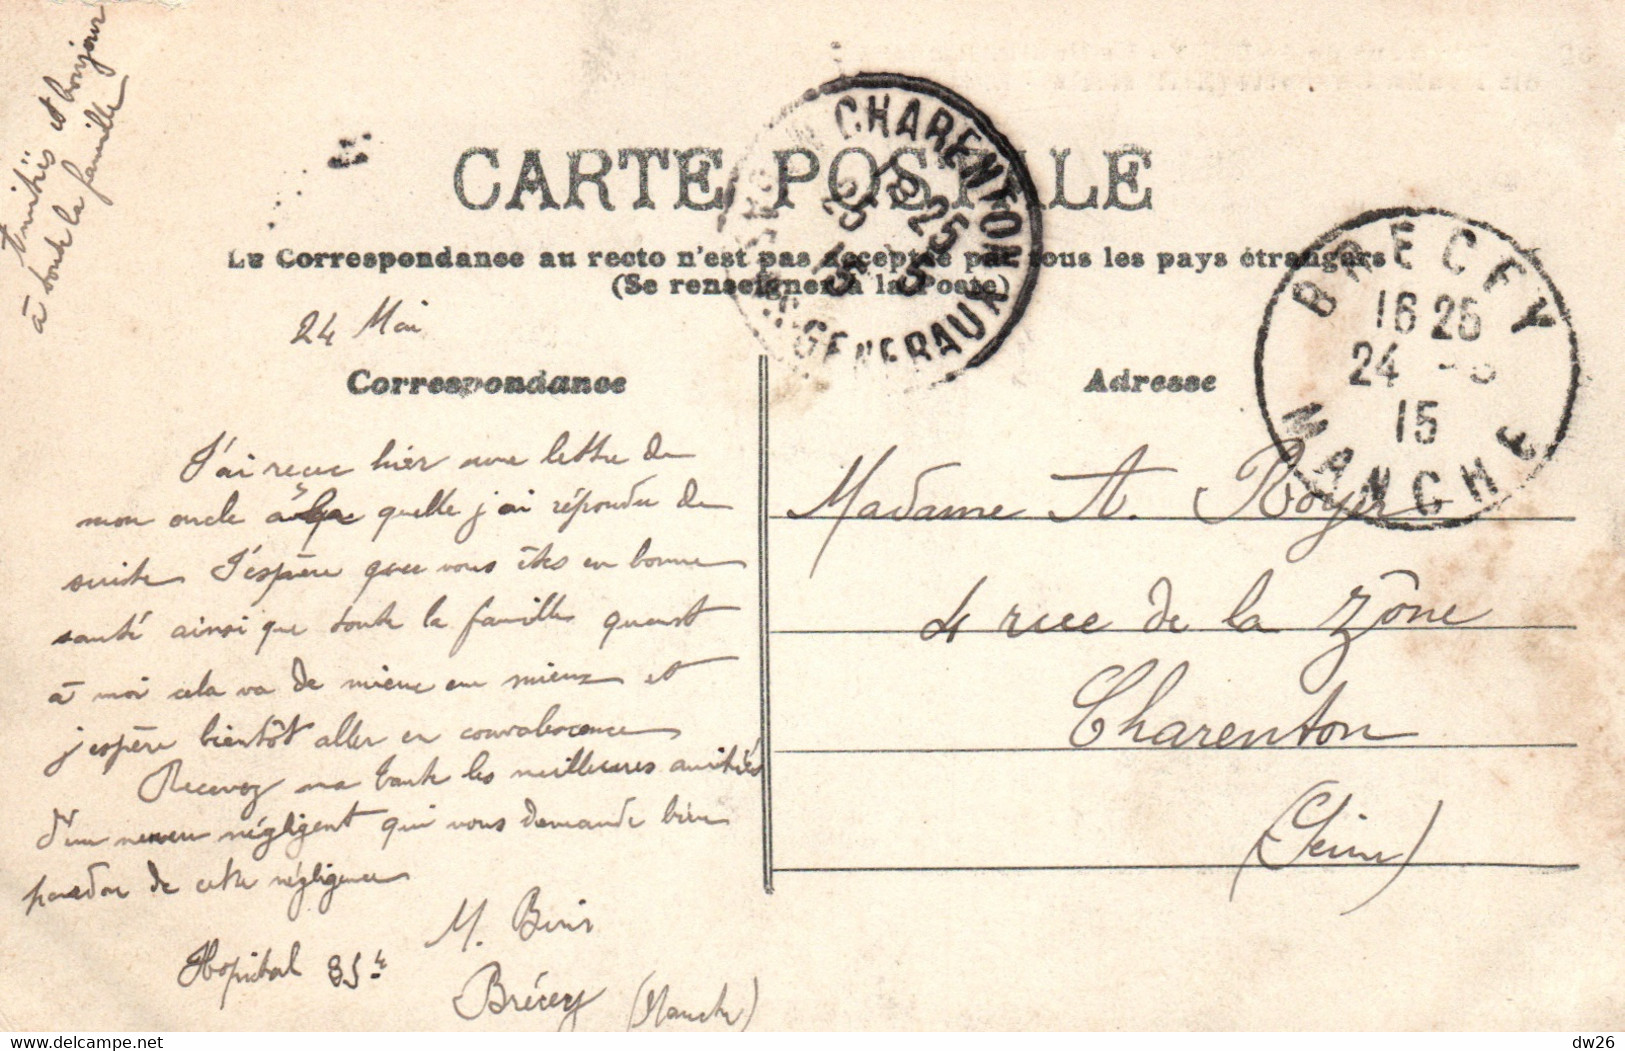 Amitiés et bonjour
à toute la famille
CARTE POSTALE
La Correspondance au recto n'est pas acceptée par tous les pays étrangers
(Se renseigner à la Poste)
CHARENTON
18 25
25 5
15
GENERAUX
BRECEY
16 25
24 -5
15
MANCHE
24 Mai
Correspondance
J'ai recue hier une lettre de
mon oncle à la quelle j'ai répondu de
suite J'espère que vous êtes en bonne
santé ainsi que toute la famille quant
à moi cela va de mieux en mieux et
j'espère bientôt aller en convalescence
Recevez ma tante les meilleures amitiés
d'un neveu négligent qui vous demande bien
pardon de cette négligence
M.
Hopital 85
Brécey (Manche)
Adresse
Madame A. Royer
4 rue de la Zône
Charenton
(Seine)
delcampe.net
dw26